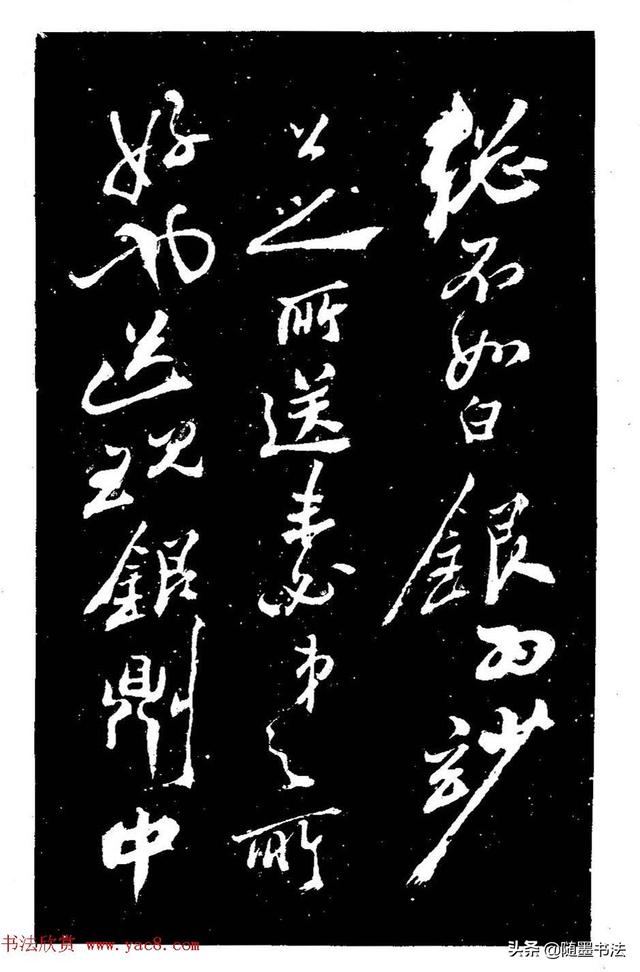 總不如白銀為玅
公之所送未必弟之所
好也送現銀則中
书法欣赏 www.yac8.com
头条 @随墨书法